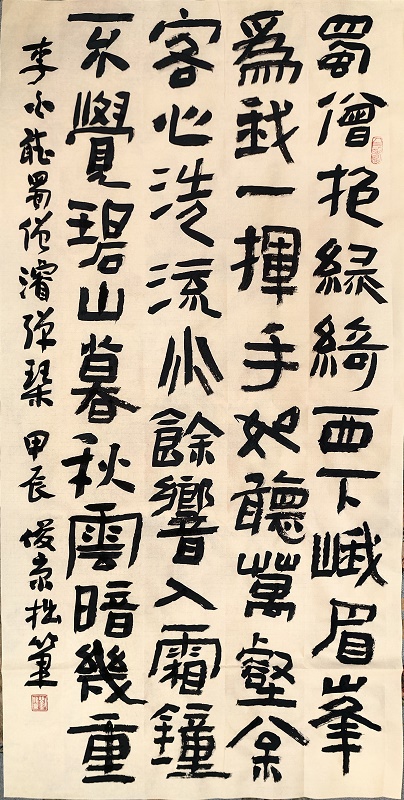 蜀僧抱綠綺西下峨眉峯
為我一揮手如聽萬壑枀
客心洗流水餘響入霜鐘
不覺碧山暮秋雲暗幾重
李白聽蜀僧濬彈琴 甲辰 俊拙筆